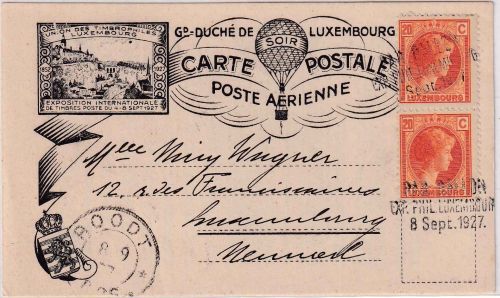 UNION DES TIMBROPHILES
LUXEMBOURG
1852 1927
EXPOSITION INTERNATIONALE
DE TIMBRES POSTE DU 4-8 SEPT 1927
GD-DUCHÉ DE LUXEMBOURG
SOIR
CARTE POSTALE
POSTE AÉRIENNE
20 C
LUXEMBOURG
20 C
LUXEMBOURG
PAR BALLON
EXP. PHIL. LUXEMBOURG
8 Sept. 1927.
Mlle Miny Wagner
12. r. des Franciscaines
Luxembourg
ROODT
8 9